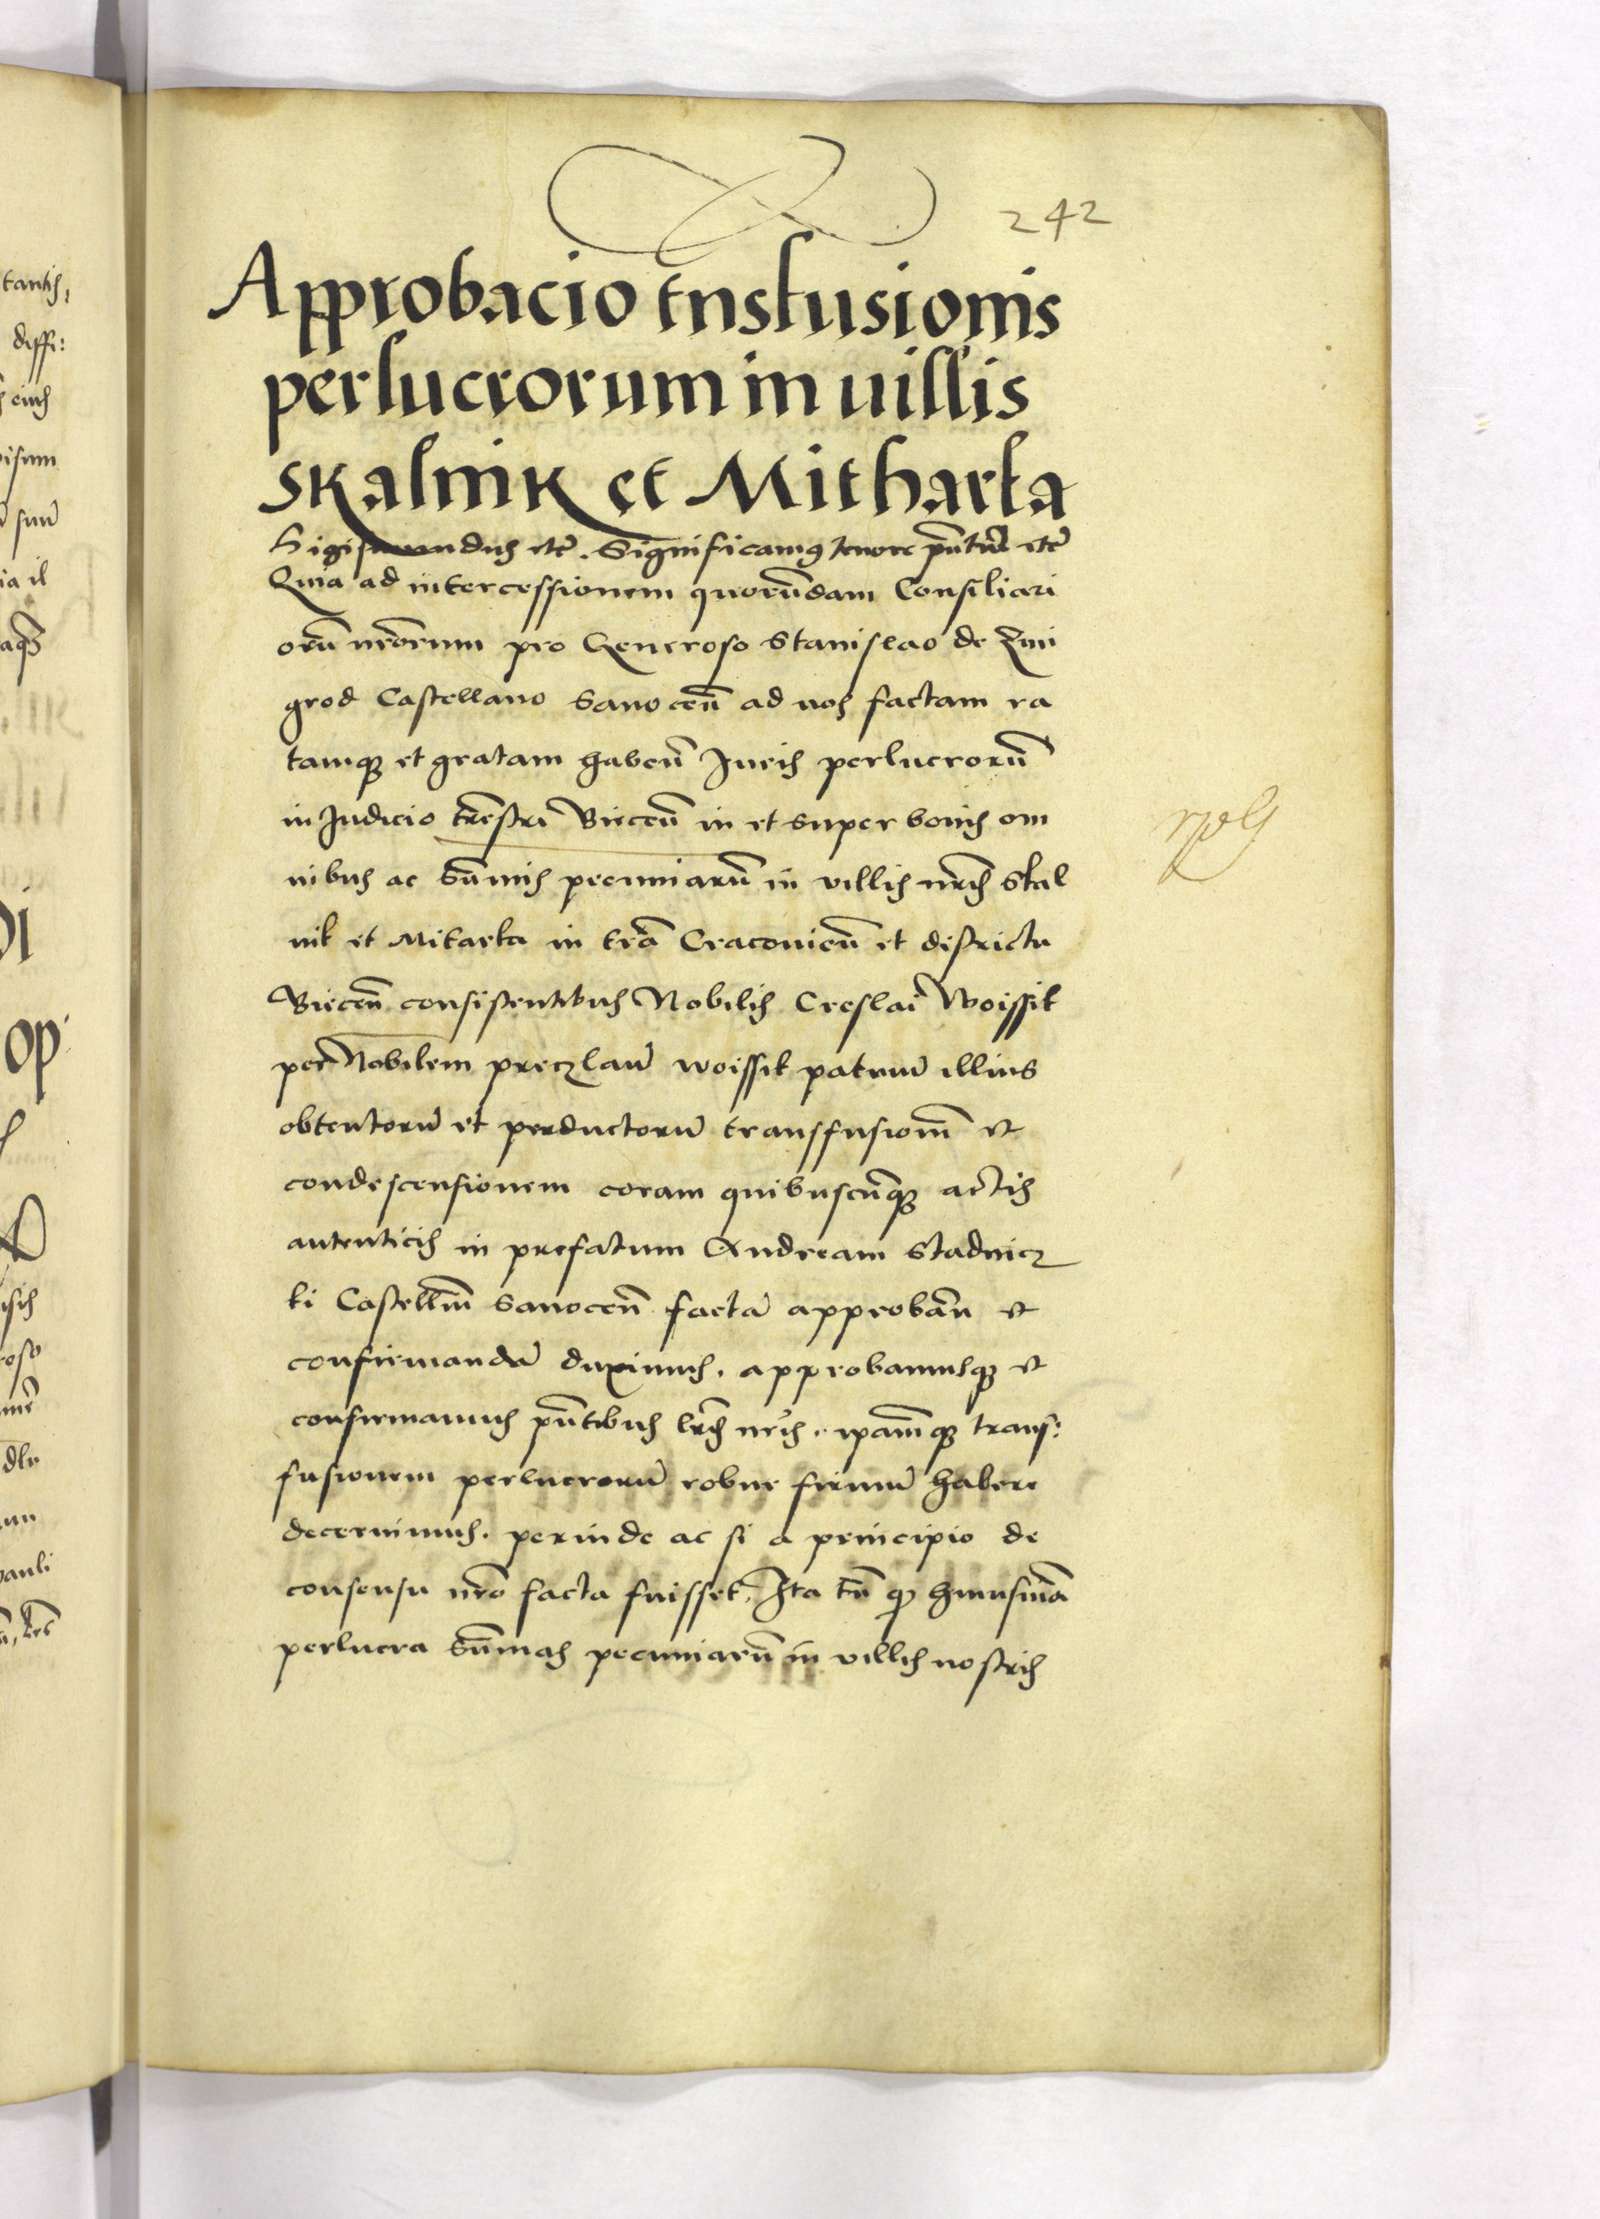 242
Approbacio tnsfusionis
perlucrorum in uillis
skalnik et Mitharka
Sigismundus etc̄. Significamus tenore pn̄tiū etc̄
Quia ad intercessionem quorūdam Consiliari
orū nrōrum pro Generoso Stanislao de Zmi
grod Castellano Sanoceñ ad nos factam ra
tamqꝫ et gratam habeñ Iuris perlucrorū
in Iudicio trr̄estri Bieceñ in et super bonis om
nibus ac sūmis pecuniarū in villis nr̄is Skal
nik et Mitarka in trā Cracovieñ et districtu
Bieceñ consistentibus Nobilis Creslai Woissik
per Nobilem preczlaū woissik patruū illius
obtentorū et perductorū transfusionē et
condescensionem coram quibuscūqꝫ actis
autenticis in prefatum Andream Stadnicz
ki Castellanū Sanoceñ factā approbāñ et
confirmandā duximus. approbamusqꝫ et
confirmamus pn̄tibus lr̄is nr̄is. ipam̄qꝫ trans:
fusionem perlucrorū robur firmū habere
decernimus. perinde ac si a principio de
consensu nrō facta fuisset. Ita tn̄ qꝫ huiusmōi
perlucra sūmas pecuniarū in villis nostris